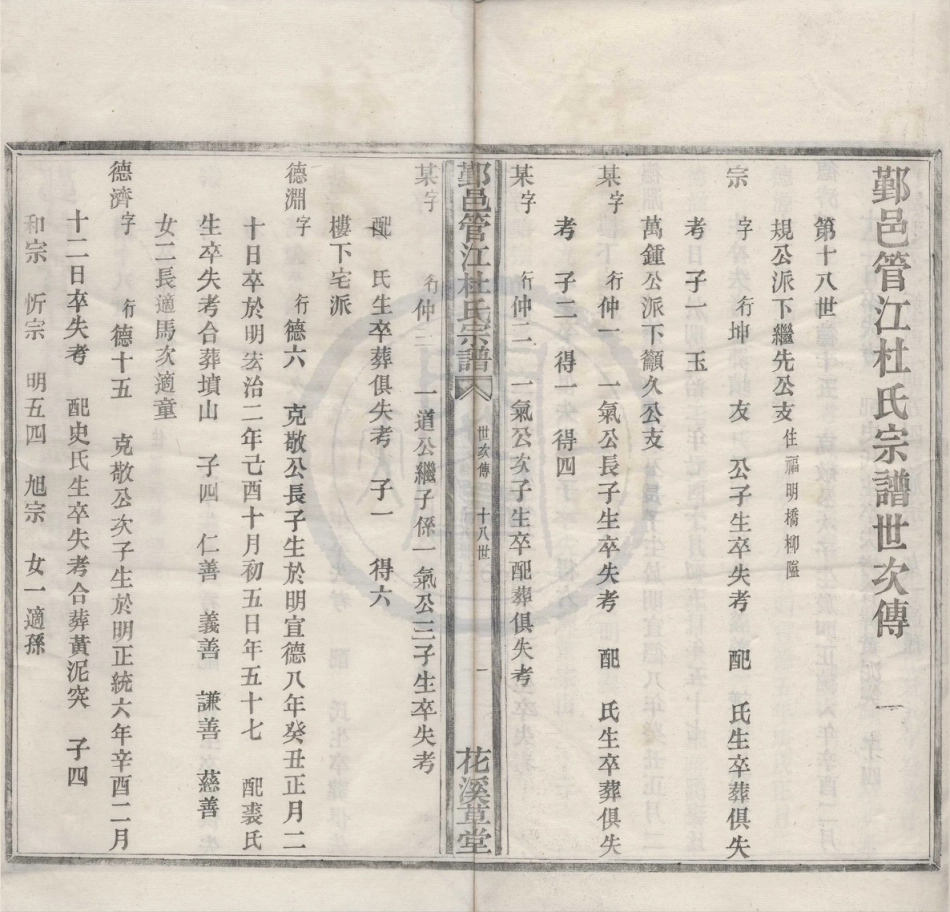 鄞邑管江杜氏宗譜世次傳 一
第十八世
規公派下繼先公支 住福明橋柳隘
宗 字 行坤 友 公子生卒失考 配 氏生卒葬俱失
考 子一 玉
萬鍾公派下籲久公支
某字 行仲一 一氣公長子生卒失考 配 氏生卒葬俱失
考 子二 得一 得四
某字 行仲二 一氣公次子生卒配葬俱失考
鄞邑管江杜氏宗譜 世次傳 十八世 一 花溪草堂
某字 行仲三 一道公繼子係一氣公三子生卒失考
配 氏生卒葬俱失考 子一 得六
樓下宅派
德淵 字 行德六 克敬公長子生於明宣德八年癸丑正月二
十日卒於明宏治二年己酉十月初五日年五十七 配裘氏
生卒失考合葬墳山 子四 仁善 義善 謙善 慈善
女二長適馬次適童
德濟 字 行德十五 克敬公次子生於明正統六年辛酉二月
十二日卒失考 配史氏生卒失考合葬黃泥突 子四
和宗 忻宗 明五四 旭宗 女一適孫